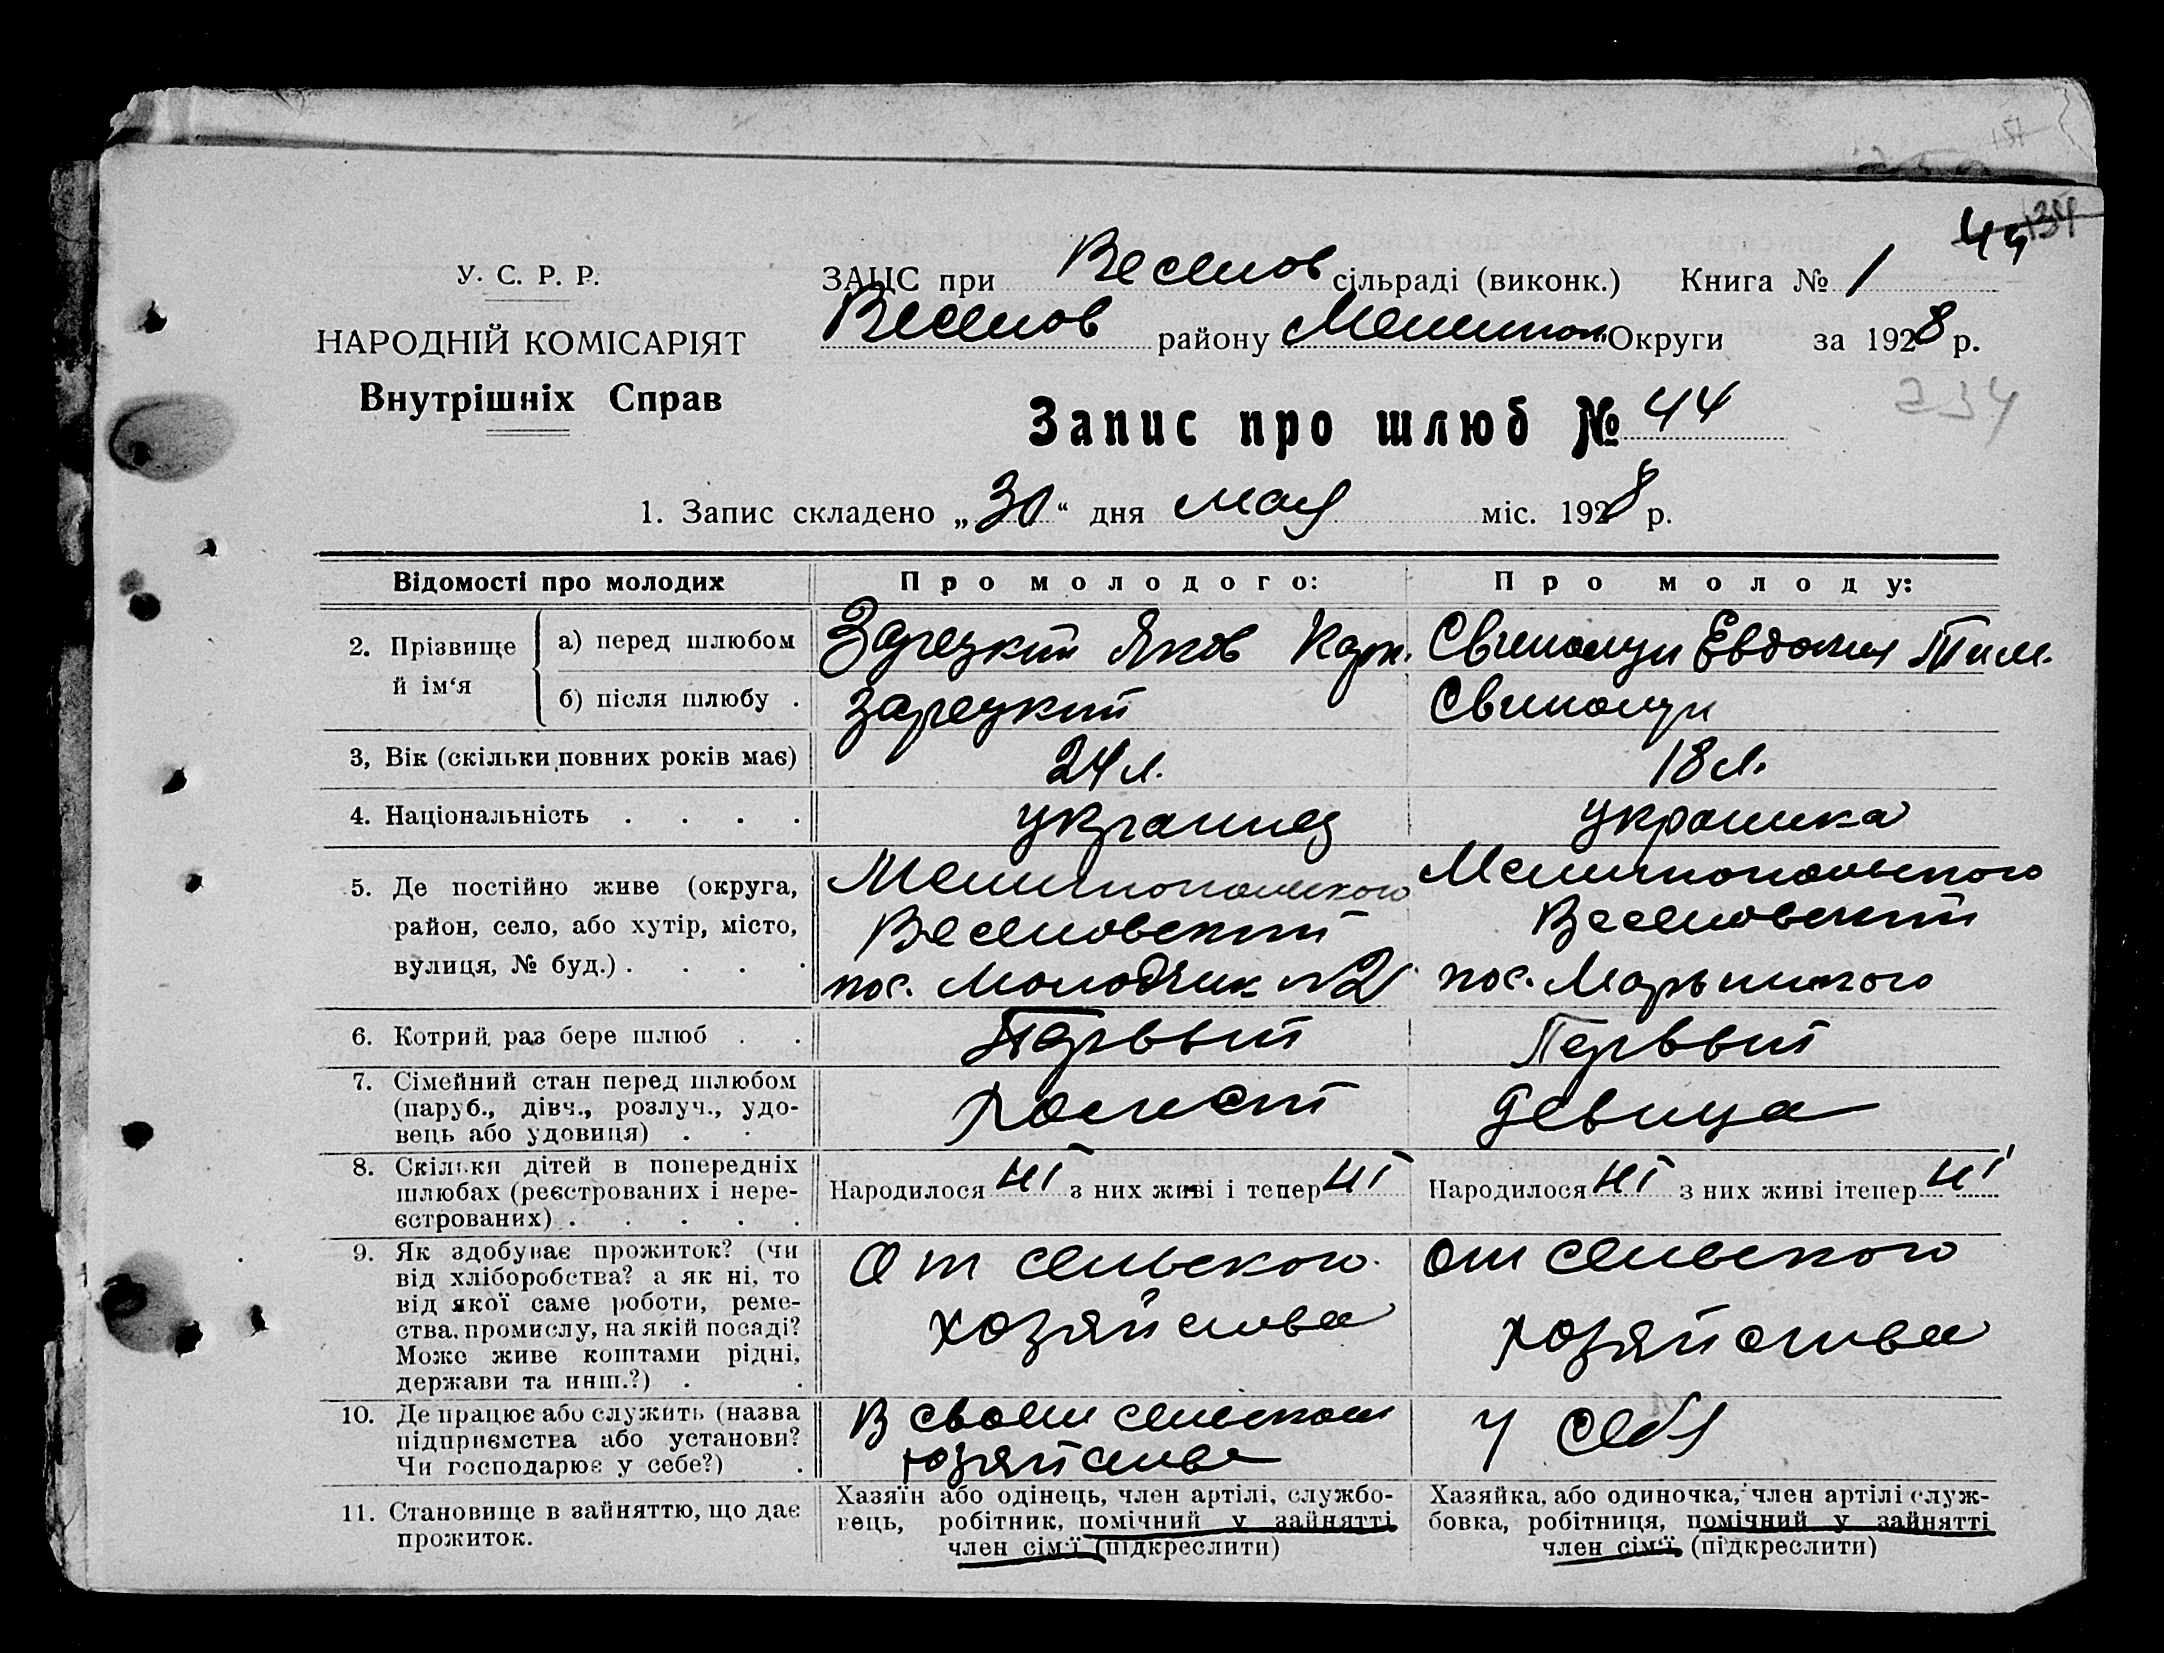 44 134
У. С. Р. Р.
ЗАЦС при Веселов сільраді (виконк.) Книга № 1
НАРОДНІЙ КОМІСАРІЯТ
Веселов району Мелитоп. Округи за 1928 р.
Внутрішніх Справ
234
Запис про шлюб № 44
1. Запис складено „30“ дня мая міс. 1928 р.
Відомості про молодих Про молодого: Про молоду:
2. Прізвище й ім‘я
а) перед шлюбом Зарецкий Яков Карп. Свинолуп Евдокия Тим.
б) після шлюбу . Зарецкий Свинолуп
3, Вік (скільки повних років має) 24 л. 18 л.
4. Національність . . . . украинец украинка
5. Де постійно живе (округа, Мелитопольского Мелитопольского
район, село, або хутір, місто, Веселовский Веселовский
вулиця, № буд.) . . . . пос. Молодняк №2 пос. Марьинкого
6. Котрий раз бере шлюб . . Первый Первый
7. Сімейний стан перед шлюбом
(паруб., дівч., розлуч., удо- Холост девица
вець або удовиця) . . .
8. Скільки дітей в попередніх
шлюбах (реєстрованих і нере- Народилося ні з них живі і тепер ні Народилося ні з них живі ітепер ні
єстрованих) . . . . .
9. Як здобуває прожиток? (чи От сельского От сельского
від хліборобства? а як ні, то
від якої саме роботи, реме-
ства, промислу, на якій посаді? хозяйства хозяйства
Може живе коштами рідні,
держави та инш.?) . .
10. Де працює або служить (назва В своем сельском У себя
підприємства або установи? хозяйстве
Чи господарює у себе?) .
11. Становище в зайняттю, що дає
прожиток.
Хазяїн або одінець, член артілі, службо-
вець, робітник, помічний у зайнятті
член сім‘ї (підкреслити)
Хазяйка, або одиночка, член артілі служ-
бовка, робітниця, помічний у зайнятті
член сім‘ї, (підкреслити)